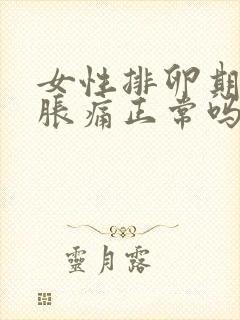 女性排卵期
脹痛正常吗
靈月露